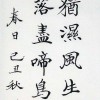 猶濕風生
落盡啼鳥
春日 己丑秋